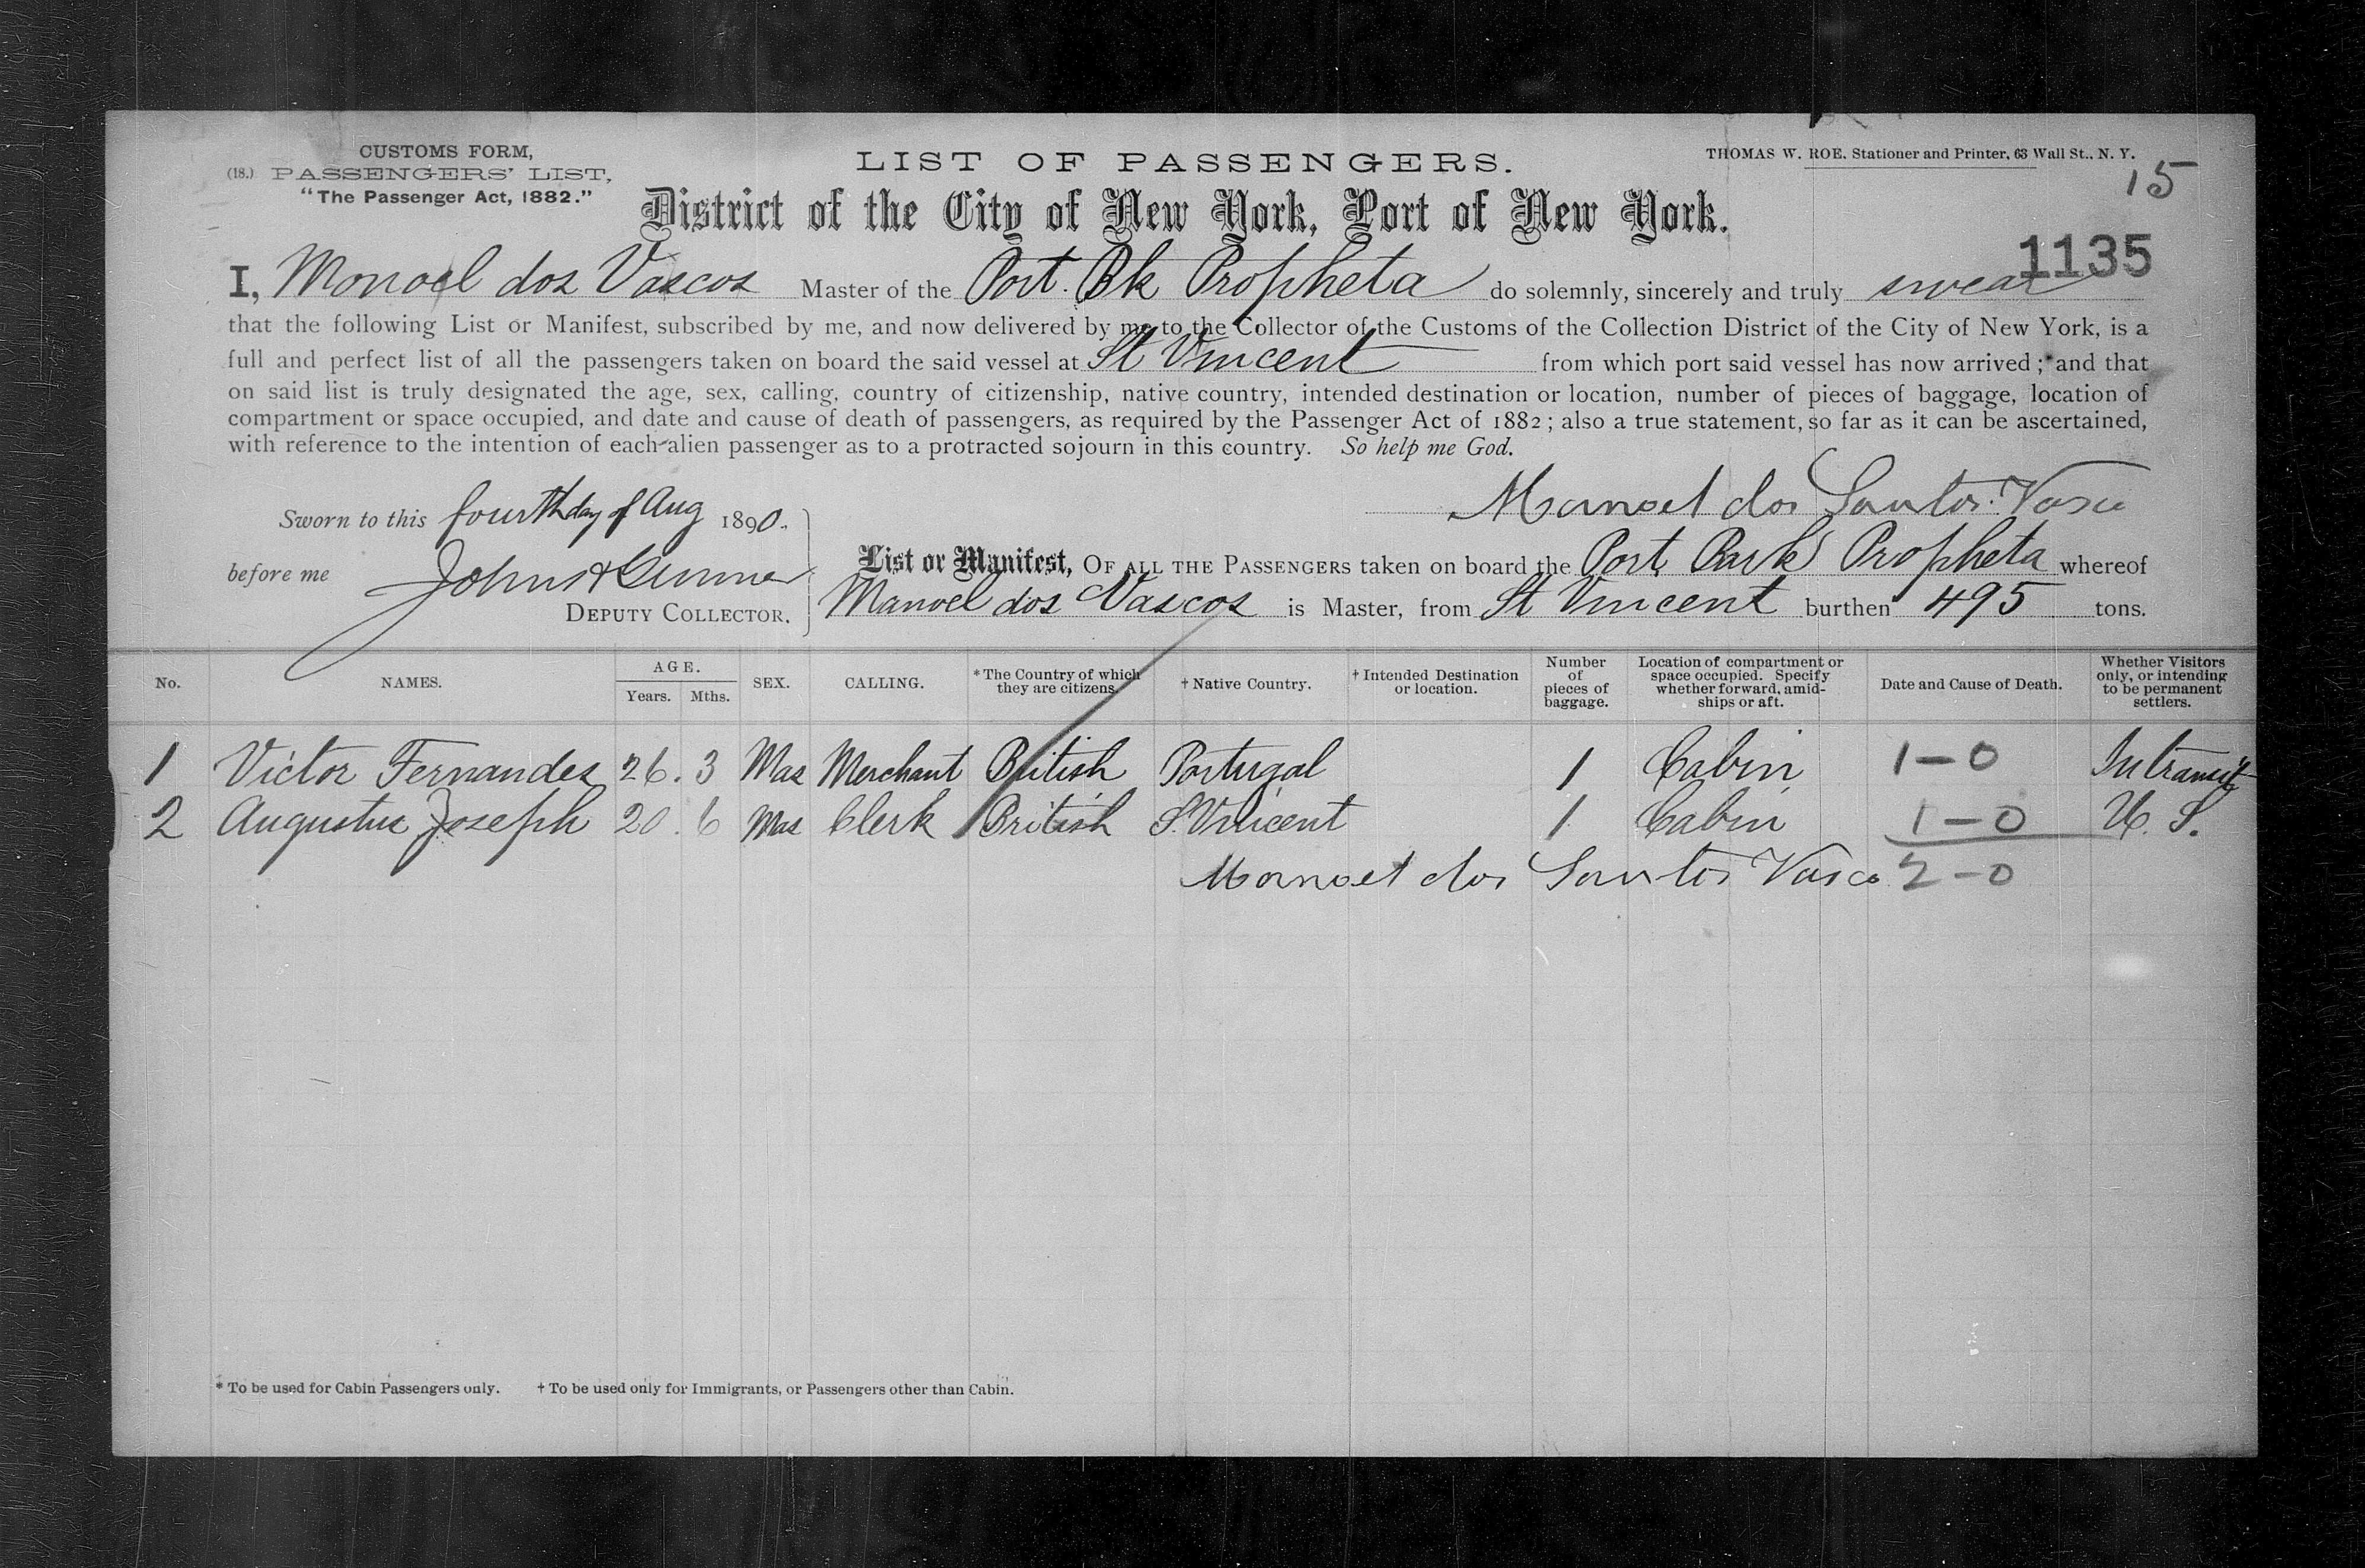 CUSTOMS FORM,
(18.) PASSENGERS' LIST,
"The Passenger Act, 1882."
LIST OF PASSENGERS.
THOMAS W. ROE, Stationer and Printer, 63 Wall St., N. Y.
15
District of the City of New York, Port of New York.
1135
I, Manoel dos Vascos Master of the Port. Bk Propheta do solemnly, sincerely and truly swear
that the following List or Manifest, subscribed by me, and now delivered by me to the Collector of the Customs of the Collection District of the City of New York, is a
full and perfect list of all the passengers taken on board the said vessel at St Vincent from which port said vessel has now arrived; and that
on said list is truly designated the age, sex, calling, country of citizenship, native country, intended destination or location, number of pieces of baggage, location of
compartment or space occupied, and date and cause of death of passengers, as required by the Passenger Act of 1882; also a true statement, so far as it can be ascertained,
with reference to the intention of each alien passenger as to a protracted sojourn in this country. So help me God.
Manoel dos Santos Vasco
Sworn to this fourth day of Aug 1890.
before me John
DEPUTY COLLECTOR.
List or Manifest, OF ALL THE PASSENGERS taken on board the Port. Bark Propheta whereof
Manoel dos Vascos is Master, from St Vincent burthen 495 tons.
No. NAMES. AGE. Years. Mths. SEX. CALLING. *The Country of which they are citizens. † Native Country. † Intended Destination or location. Number of pieces of baggage. Location of compartment or space occupied. Specify whether forward, amidships or aft. Date and Cause of Death. Whether Visitors only, or intending to be permanent settlers.
1 Victor Fernandes 26. 3 Mas Merchant British Portugal 1 Cabin 1-0 In transit
2 Augustus Joseph 20. 6 Mas Clerk British St. Vincent 1 Cabin 1-0 U. S.
Manoel dos Santos Vasco 2-0
* To be used for Cabin Passengers only. † To be used only for Immigrants, or Passengers other than Cabin.